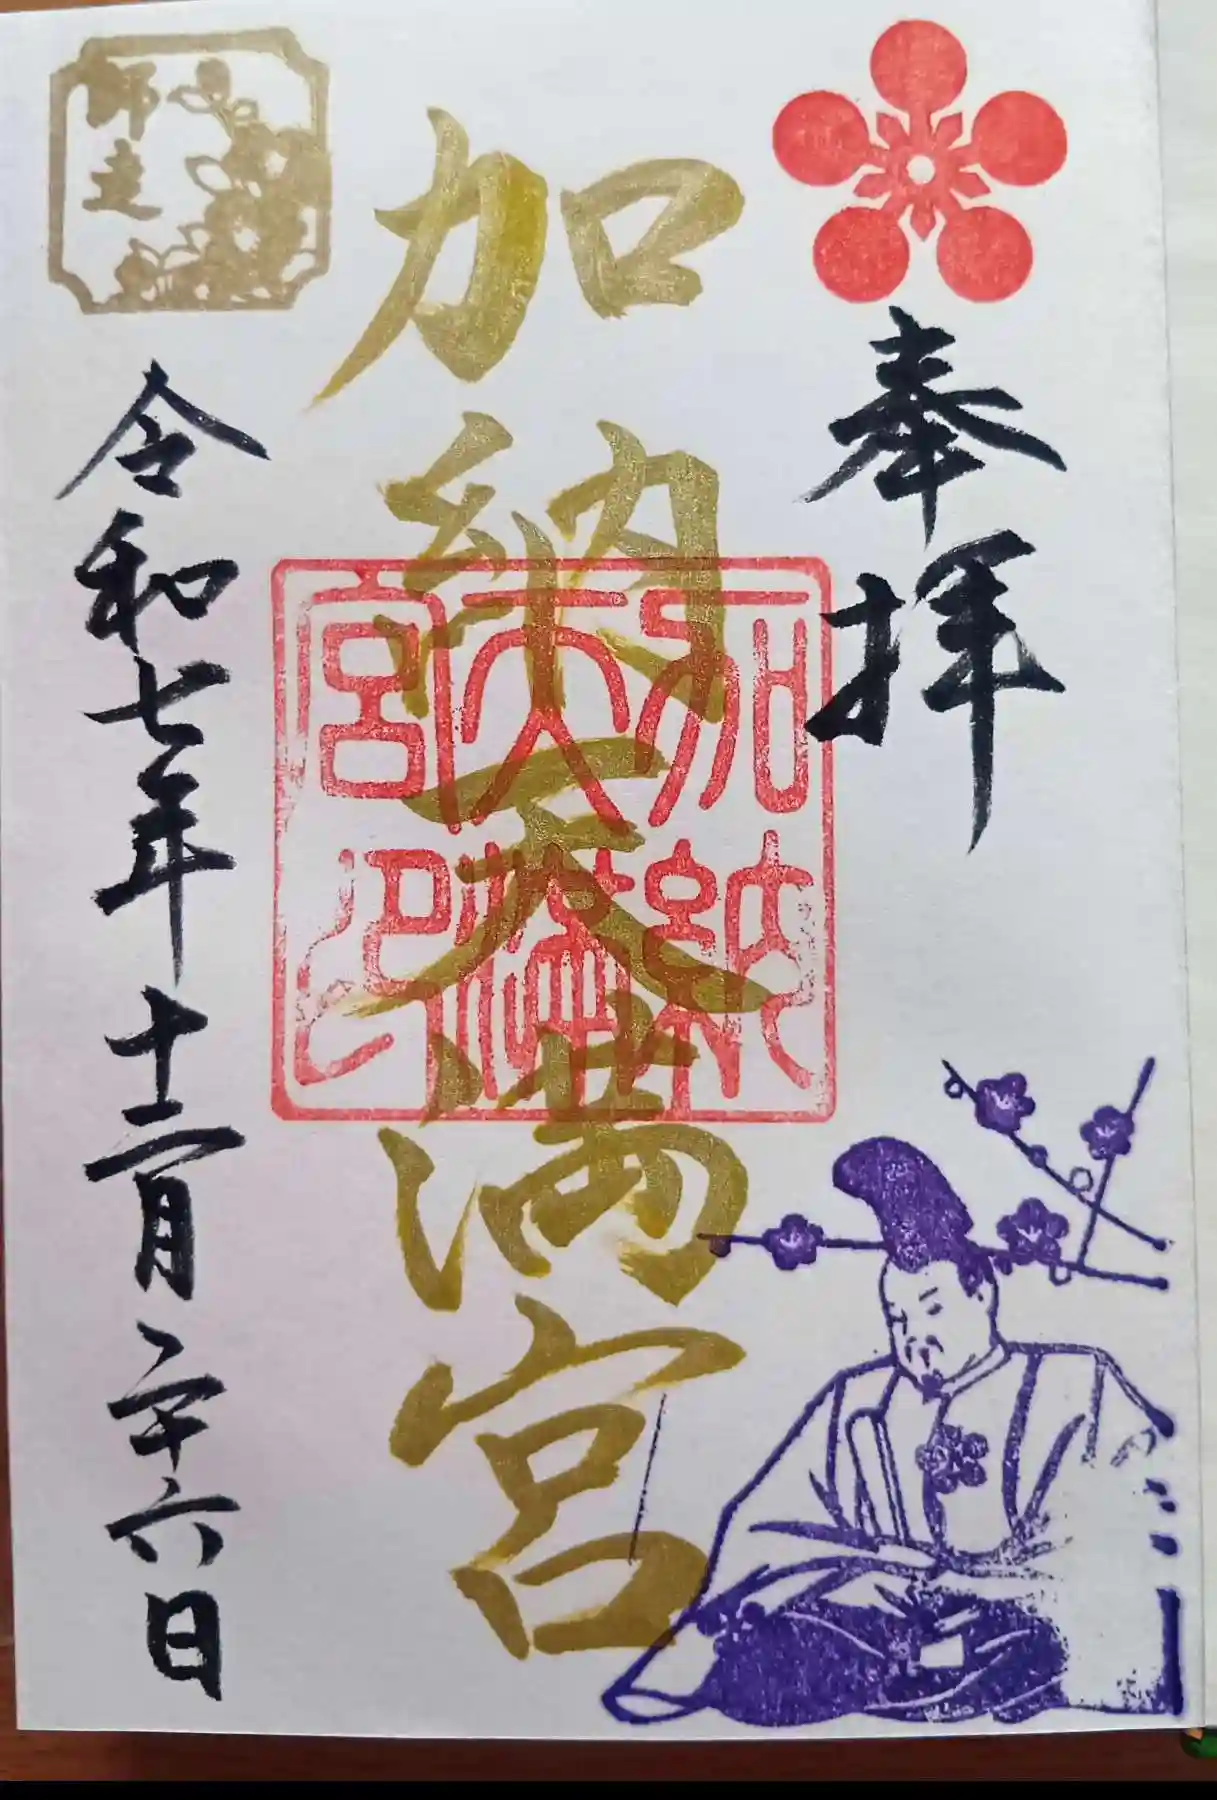 奉拝
加納天満宮
加納
天満
宮印
師走
令和七年十二月二十六日